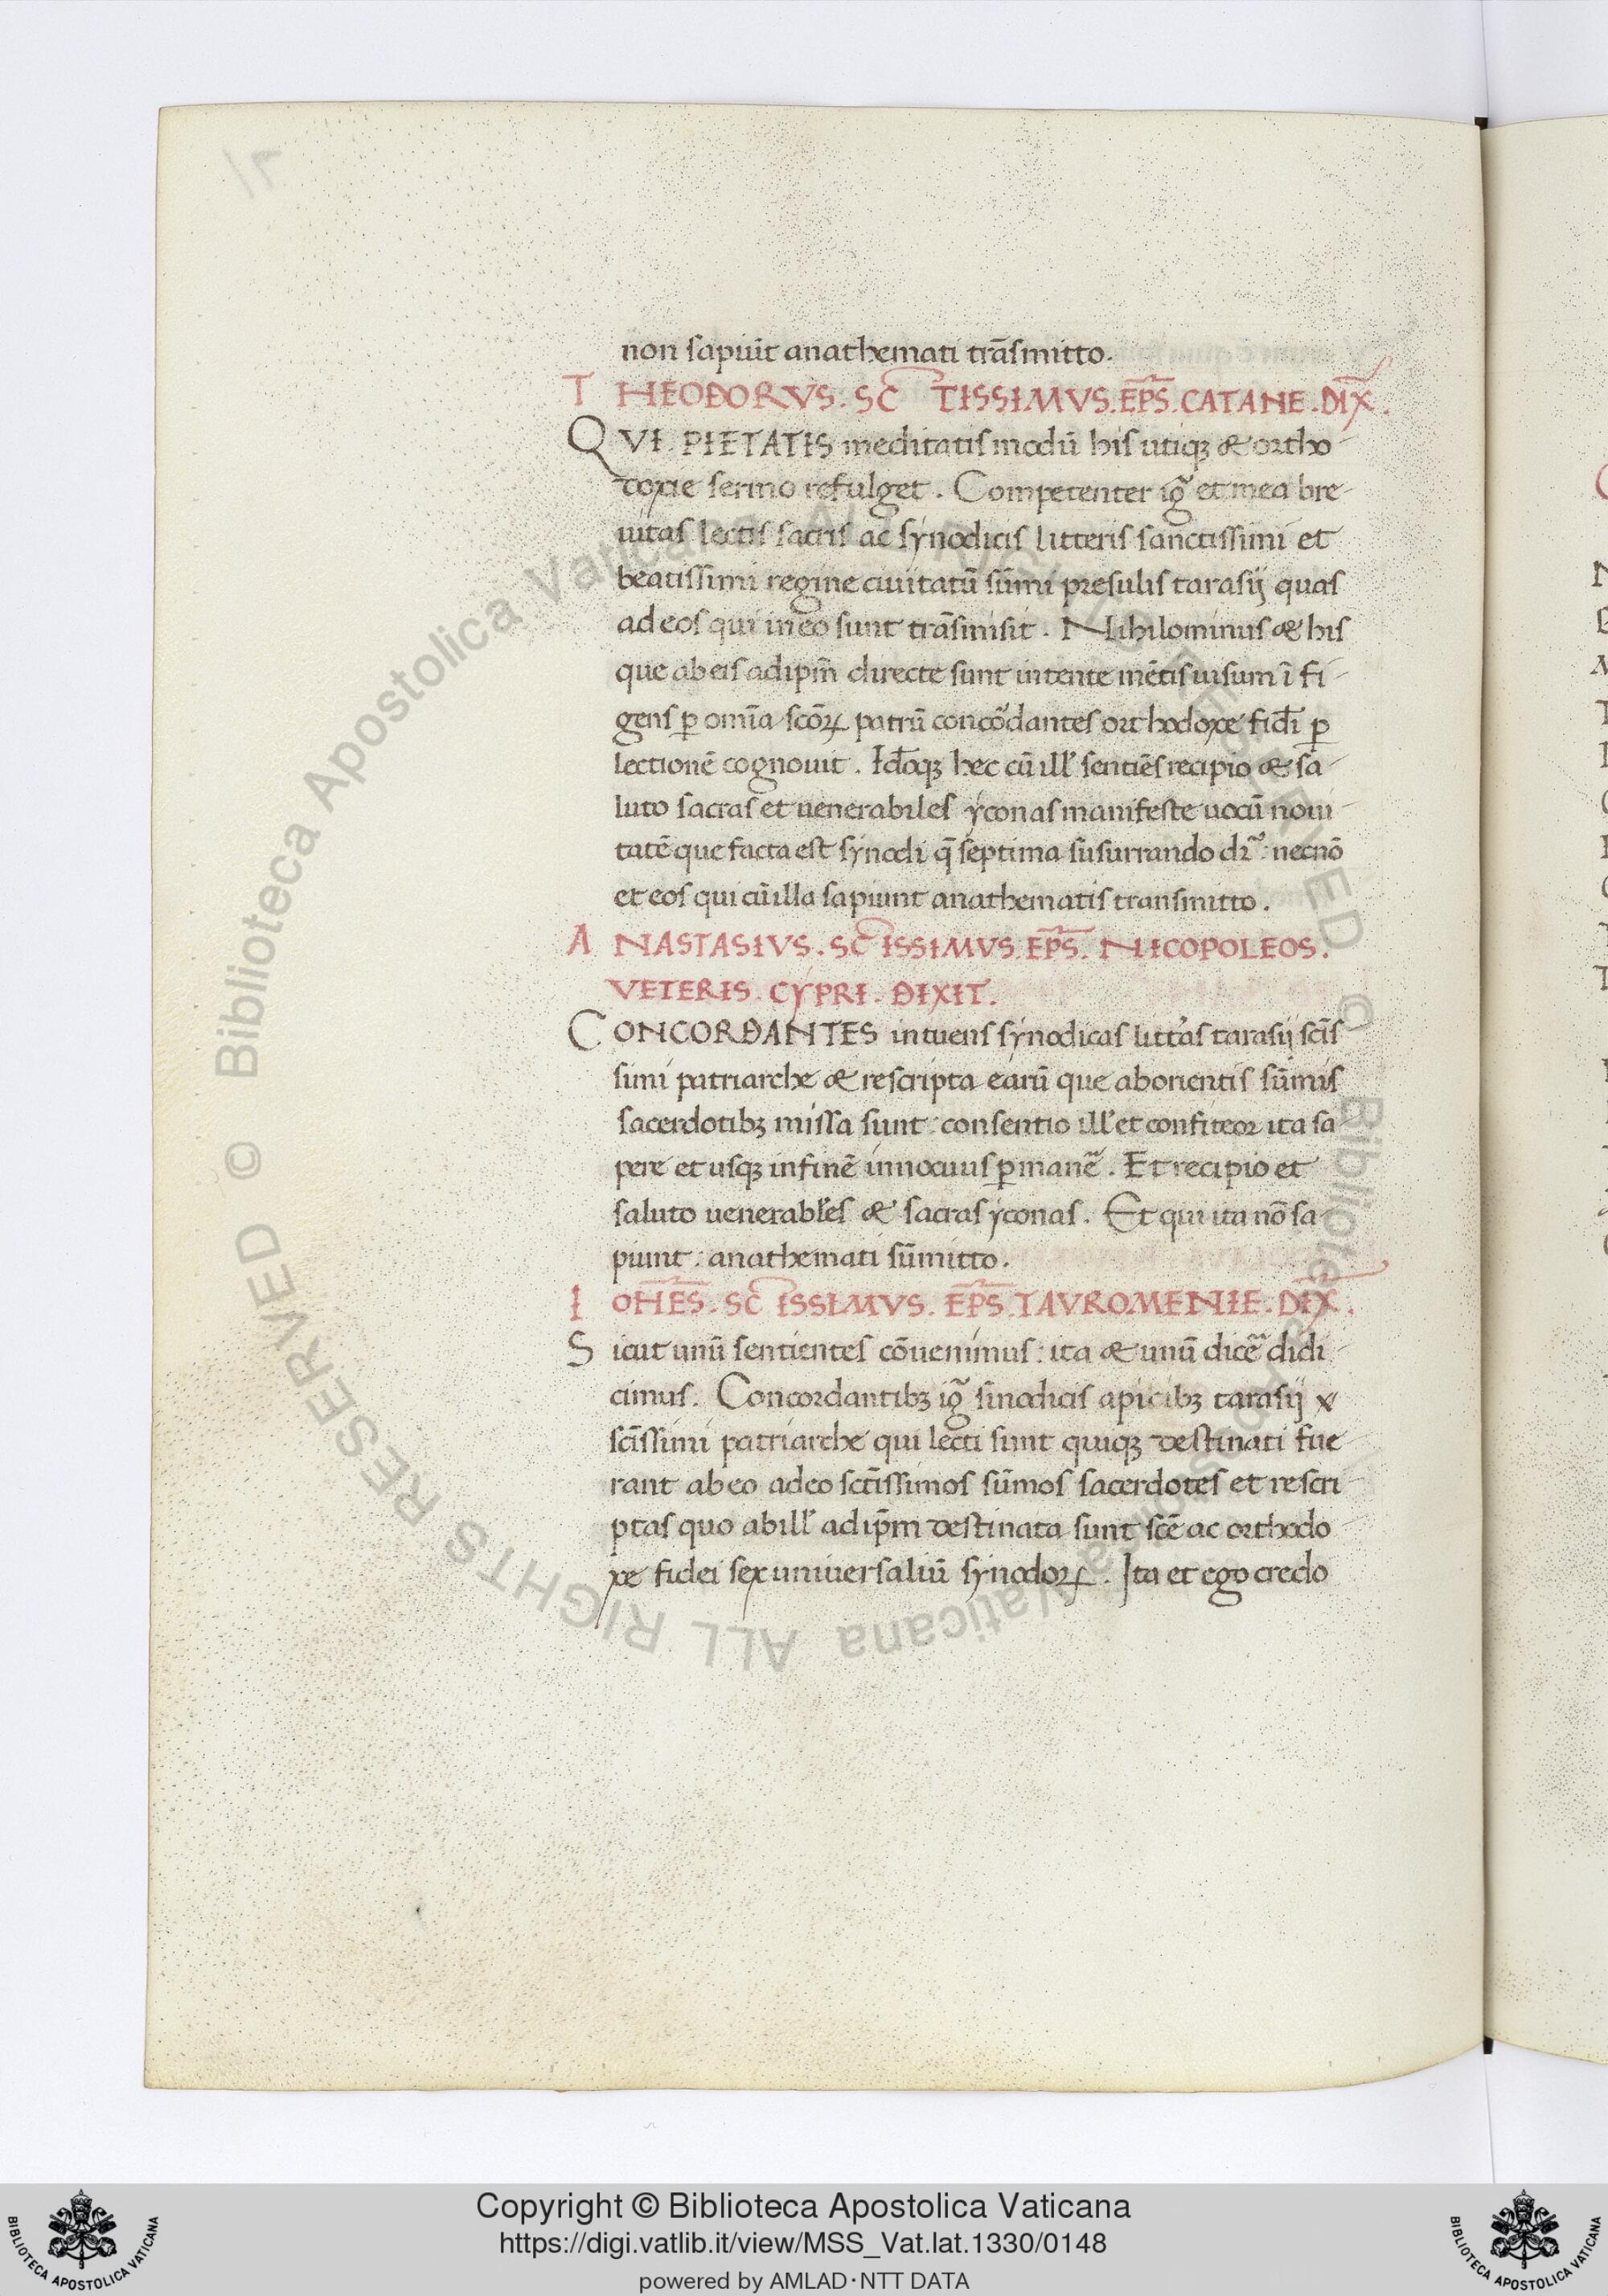 non sapiūt anathemati trāsmitto.
THEODORVS. SC̄TISSIMVS. EP̄S. CATANE. DIX̄.
QVI PIETATIS meditatis modū his utiqꝫ & ortho-
doxie sermo refulget. Competenter ig̃ et mea bre-
uitas lectis sacris ac synodicis litteris sanctissimi et
beatissimi regine ciuitatū sūmi presulis tarasij quas
ad eos qui in eo sunt trāsmisit. Nihilominus & his
que ab eis ad ipm̄ directe sunt intente mētis uisum ī fi-
gens ꝑ omīa scōꝝ patrū concōdantes orthodoxe fidi̅ ꝑ
lectionē cognouit. Id̄oqꝫ hec cū ill' sentiēs recipio & sa-
luto sacras et uenerabiles yconas manifeste uocū noui-
tatē que facta est synodi q̄ septima susurrando dr̄: necnō
et eos qui cū illa sapiunt anathematis transmitto.
ANASTASIVS. SC̄ISSIMVS. EP̄S. NICOPOLEOS.
VETERIS. CYPRI. DIXIT.
CONCORDANTES intuens synodicas litt'as tarasij scīs
simi patriarche & rescripta earū que ab orientis sūmis
sacerdotibꝫ missa sunt: consentio ill' et confiteor ita sa-
pere et usqꝫ in finē innocuus ꝑmanē. Et recipio et
saluto uenerabl'es & sacras yconas. Et qui ita nō sa-
piunt: anathemati sūmitto.
IOH̄ES. SC̄ISSIMVS. EP̄S. TAVROMENIE. DIX̄.
Sicut unū sentientes cōuenimus: ita & unū dicē didi-
cimus. Concordantibꝫ ig̃ sinodicis apicibꝫ tarasij x
scīssimi patriarche qui lecti sunt quiqꝫ destinati fue-
rant ab eo ad eo sctīssimos sūmos sacerdotes et rescri-
ptas quo ab ill' ad ip̄m destinata sunt scē ac orthodo-
xe fidei sex uniuersaliū synodoꝝ. Ita et ego credo
© Biblioteca Apostolica Vaticana ALL RIGHTS RESERVED
© Biblioteca Apostolica Vaticana ALL RIGHTS RESERVED
Copyright © Biblioteca Apostolica Vaticana
https://digi.vatlib.it/view/MSS_Vat.lat.1330/0148
powered by AMLAD·NTT DATA
BIBLIOTECA APOSTOLICA VATICANA
BIBLIOTECA APOSTOLICA VATICANA